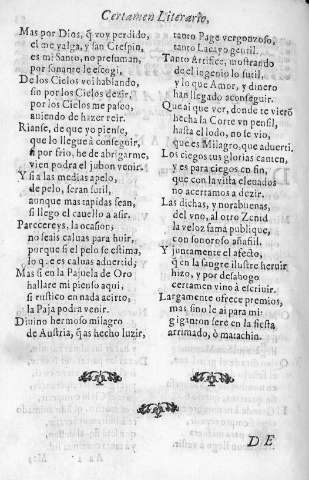 Certamen Literario,
Mas por Dios, q̃ voy perdido,
el me valga, y san Crespin,
es mi Santo, no presuman,
por sonante le escogi.
De los Cielos voi hablando,
sin por los Cielos dezir,
por los Cielos me passeo,
auiendo de hazer reir.
Rianse, de que yo piense,
que lo lleguè à conseguir,
si por frio, he de abrigarme,
vien podra el jubon venir.
Y si a las medias apelo,
de pelo, seran sutil,
aunque mas tapidas sean,
si llego el cauello a asir.
Parecereys, la ocasion,
no seais caluas para huir,
porque si el pelo se estima,
lo que es caluas aduertid;
Mas si en la Pajuela de Oro
hallare mi pienso aqui,
si rustico en nada acirto,
la Paja podra venir.
Diuino hermoso milagro
de Austria, q̃ as hecho luzir,
tanto Page vergonzoso,
tanto Lacayo gentil.
Tanto Artifice, mostrando
del ingenio lo sutil,
y lo que Amor, y dinero
han llegado a conseguir.
Que ai que ver, donde te vierõ
hecha la Corte vn pensil,
hasta el lodo, no se vio,
que es Milagro, que aduerti.
Los ciegos tus glorias canten,
y es para ciegos en fin,
que con la vista eleuados
no acertamos a dezir.
Las dichas, y norabuenas
del vno, al otro Zenid
la veloz fama publique,
con sonoroso añafil.
Y juntamente el afecto,
q̃ en la sangre ilustre heruir
hizo, y por desahogo
certamen vino à escriuir.
Largamente ofrece premios,
mas sino le ai para mi:
giganton sere en la fiesta
arrimado, ò matachin.
DE